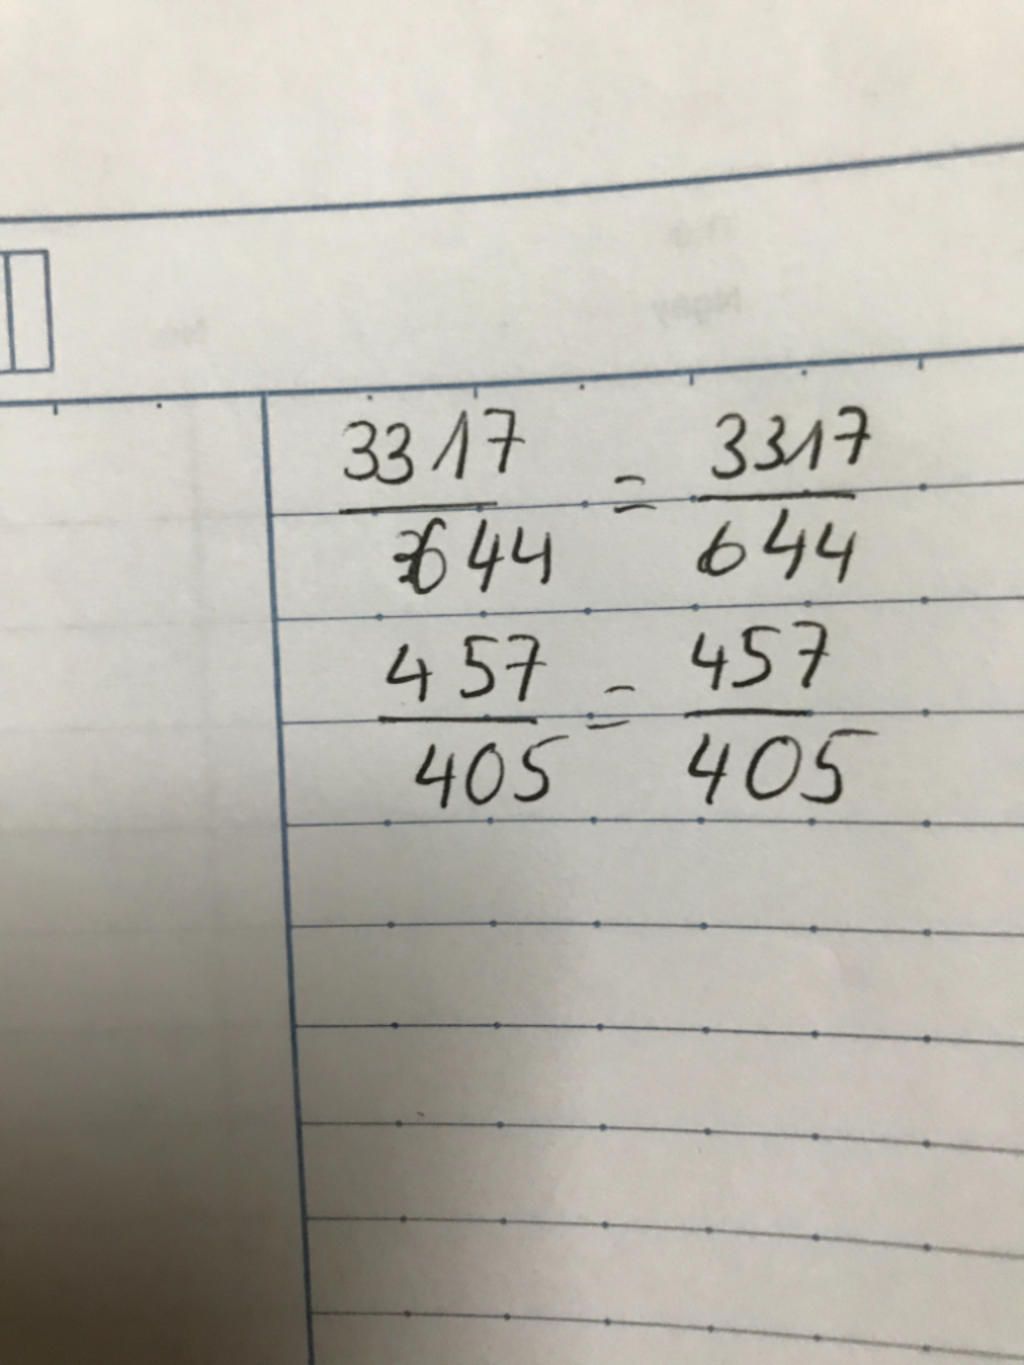 3317/644 = 3317/644
457/405 = 457/405